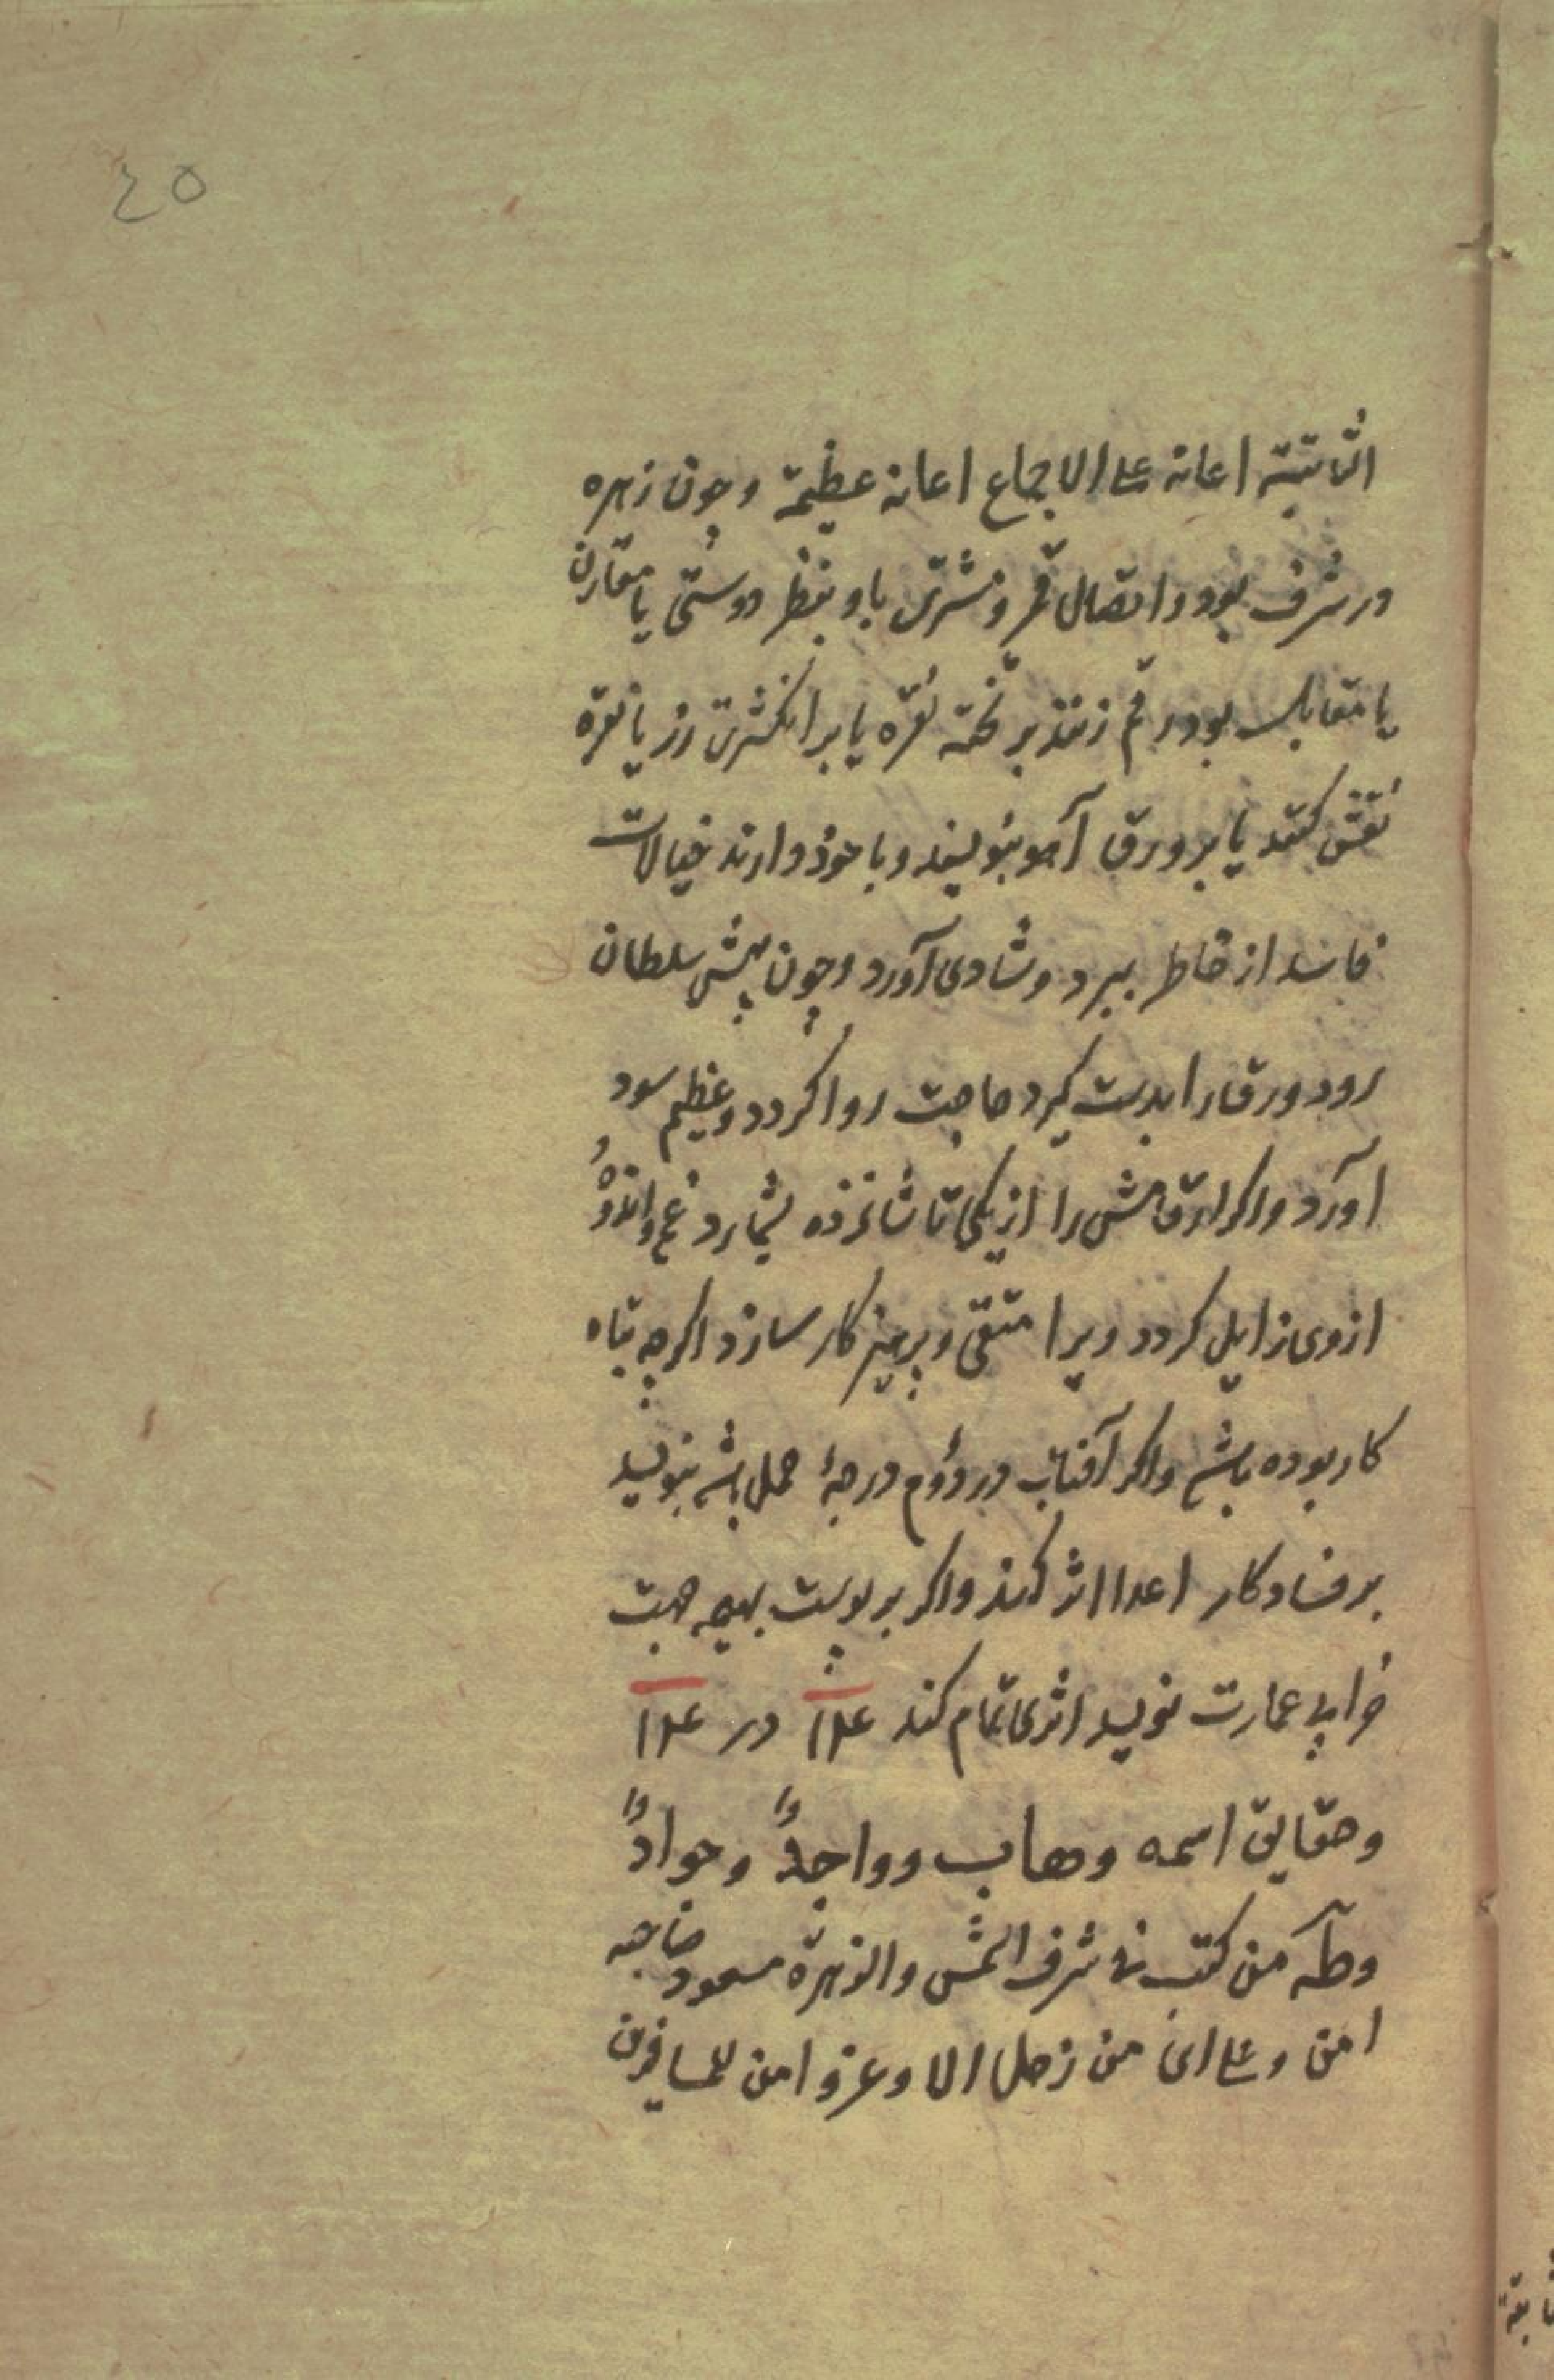 ٤٥
الثابتة اعانه علی الاجماع اعانه عظیمة وچون زهره
در شرف بود واتصال قمر ومشتری باو بنظر دوستی یا مقارن
یا مقابله بود رقم زنند بر تخته نقره یا بر انکشتری زر یا نقره
نقش کنند یا بر ورق آهو بنویسند وبا خود دارند خیالات
فاسد از خاطر ببرد وشادی آورد وچون پیش سلطان
رود ورق را بدست کیرد حاجت روا کردد وعظیم سود
آورد واکر ارقامش را از یکی تا شانزده بشمارد غم واندوه
از وی زایل کردد ویرا متقی وپرهیز کار سازد اکرچه تباه
کار بوده باشد واکر آفتاب در دوم درجهٔ حمل باشد بنویسد
بر فساد کار اعدا اثر کند واکر بر پوست بهیمه جهت
خرابی عمارت نویسد اثری تمام کند ۱۴ در ۱۴
وحقایق اسمه وهاب وواجدٌ وجوادٌ
وطه من کتب فی شرف الشمس والزهرة مسعود صاحبه
امن وعلی ای من زحل الا وعز وامن للمسافرین